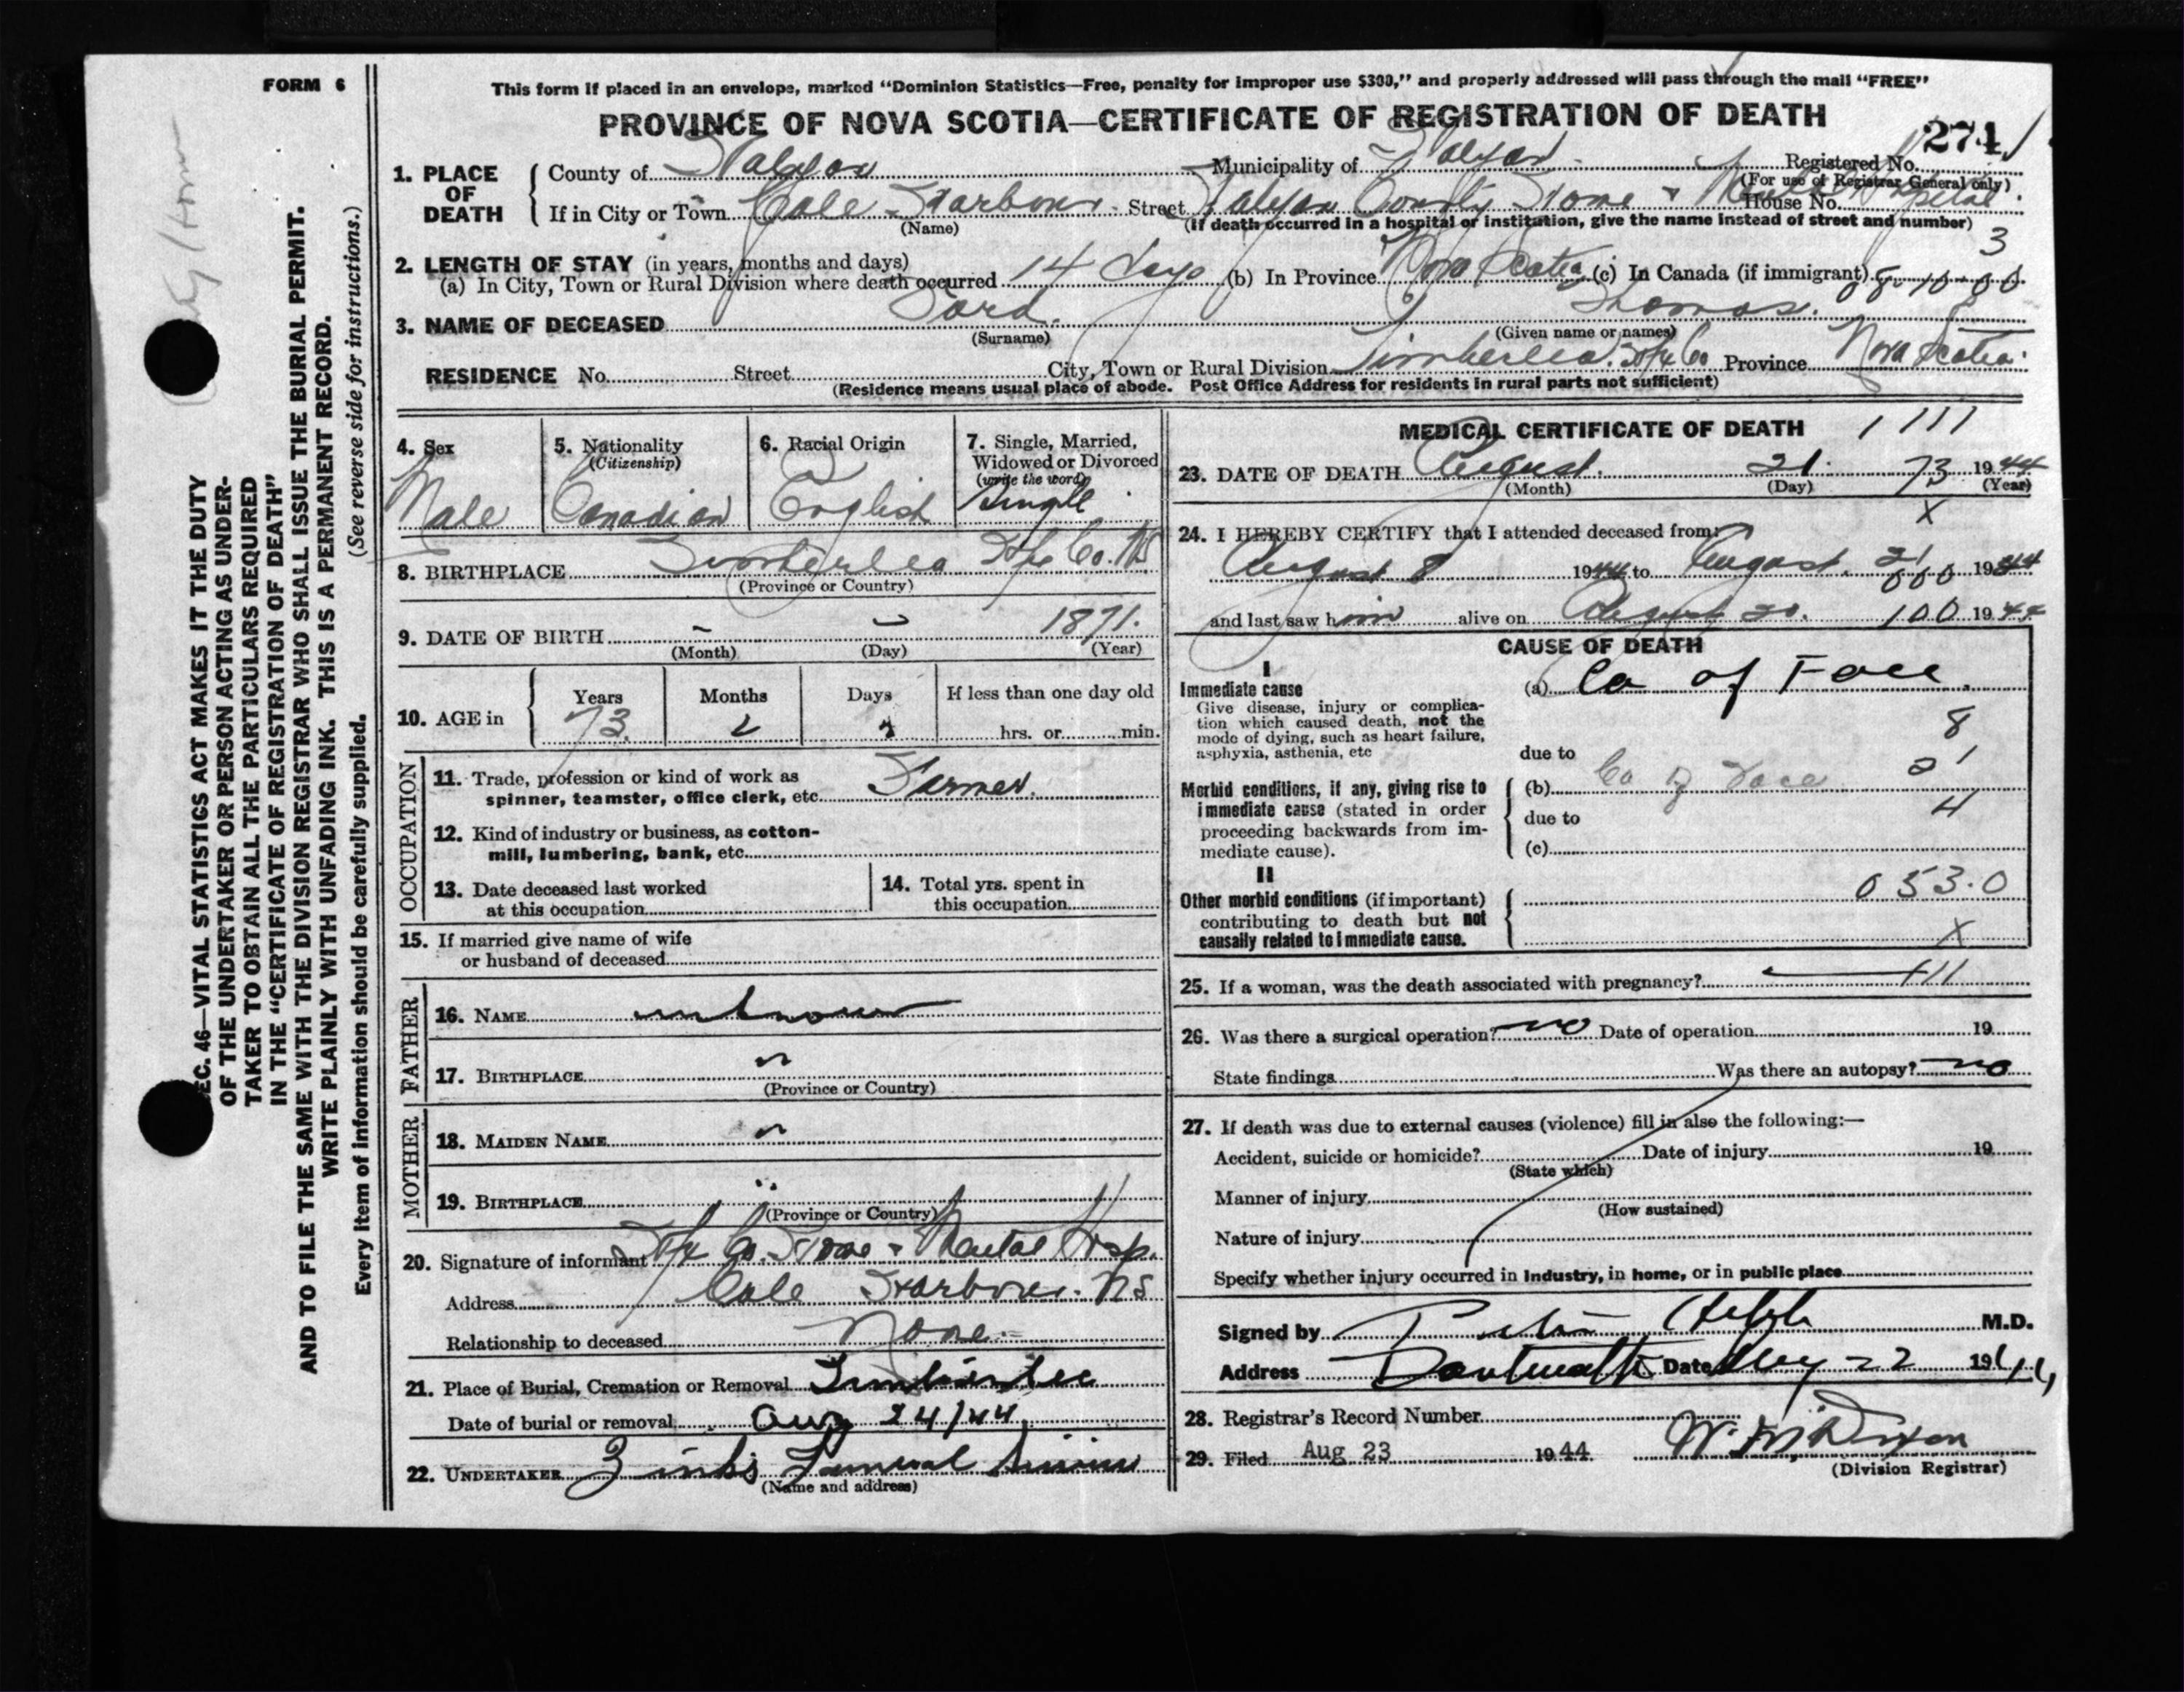 FORM 6
This form if placed in an envelope, marked "Dominion Statistics—Free, penalty for improper use $300," and properly addressed will pass through the mail "FREE"
PROVINCE OF NOVA SCOTIA—CERTIFICATE OF REGISTRATION OF DEATH
274
1. PLACE OF DEATH
County of Halifax Municipality of Halifax Registered No.
(For use of Registrar General only)
If in City or Town Cole Harbour Street Halifax County Home & Mental Hospital House No.
(Name) (If death occurred in a hospital or institution, give the name instead of street and number)
3
2. LENGTH OF STAY (in years, months and days)
(a) In City, Town or Rural Division where death occurred 14 days (b) In Province Nova Scotia (c) In Canada (if immigrant)
3. NAME OF DECEASED Thomas.
(Surname) (Given name or names)
RESIDENCE No. Street City, Town or Rural Division Timberlea Hfx Co Province Nova Scotia
(Residence means usual place of abode. Post Office Address for residents in rural parts not sufficient)
4. Sex Male
5. Nationality (Citizenship) Canadian
6. Racial Origin English
7. Single, Married, Widowed or Divorced (write the word) Single
8. BIRTHPLACE Timberlea Hfx Co. NS
(Province or Country)
9. DATE OF BIRTH – – 1871.
(Month) (Day) (Year)
10. AGE in Years 73 Months 2 Days If less than one day old hrs. or min.
OCCUPATION
11. Trade, profession or kind of work as spinner, teamster, office clerk, etc. Farmer.
12. Kind of industry or business, as cotton-mill, lumbering, bank, etc.
13. Date deceased last worked at this occupation
14. Total yrs. spent in this occupation
15. If married give name of wife or husband of deceased
FATHER
16. NAME unknown
17. BIRTHPLACE "
(Province or Country)
MOTHER
18. MAIDEN NAME "
19. BIRTHPLACE "
(Province or Country)
20. Signature of informant Hfx Co. Home & Mental Hosp.
Address Cole Harbour. NS
Relationship to deceased None.
21. Place of Burial, Cremation or Removal Timberlea
Date of burial or removal Aug 24/44
22. UNDERTAKER Zinks Funeral Service
(Name and address)
MEDICAL CERTIFICATE OF DEATH 1111
23. DATE OF DEATH August. 21. 73 1944
(Month) (Day) (Year)
X
24. I HEREBY CERTIFY that I attended deceased from:
August 8 1944 to August. 21 000 1944
and last saw him alive on August 20. 100 1944
CAUSE OF DEATH
I
Immediate cause
Give disease, injury or complication which caused death, not the mode of dying, such as heart failure, asphyxia, asthenia, etc
(a) Ca of Face.
8
due to
Morbid conditions, if any, giving rise to immediate cause (stated in order proceeding backwards from immediate cause).
(b) Ca of Face
4
due to
(c)
II
Other morbid conditions (if important) contributing to death but not causally related to immediate cause.
053.0
X
25. If a woman, was the death associated with pregnancy? 111
26. Was there a surgical operation? no Date of operation 19
State findings Was there an autopsy? no
27. If death was due to external causes (violence) fill in also the following:—
Accident, suicide or homicide? Date of injury 19
(State which)
Manner of injury
(How sustained)
Nature of injury
Specify whether injury occurred in industry, in home, or in public place
Signed by M.D.
Address Dartmouth Date Aug 22 1944
28. Registrar's Record Number
29. Filed Aug 23 1944
(Division Registrar)
EC. 46—VITAL STATISTICS ACT MAKES IT THE DUTY
OF THE UNDERTAKER OR PERSON ACTING AS UNDER-
TAKER TO OBTAIN ALL THE PARTICULARS REQUIRED
IN THE "CERTIFICATE OF REGISTRATION OF DEATH"
AND TO FILE THE SAME WITH THE DIVISION REGISTRAR WHO SHALL ISSUE THE BURIAL PERMIT.
WRITE PLAINLY WITH UNFADING INK. THIS IS A PERMANENT RECORD.
Every item of information should be carefully supplied. (See reverse side for instructions.)